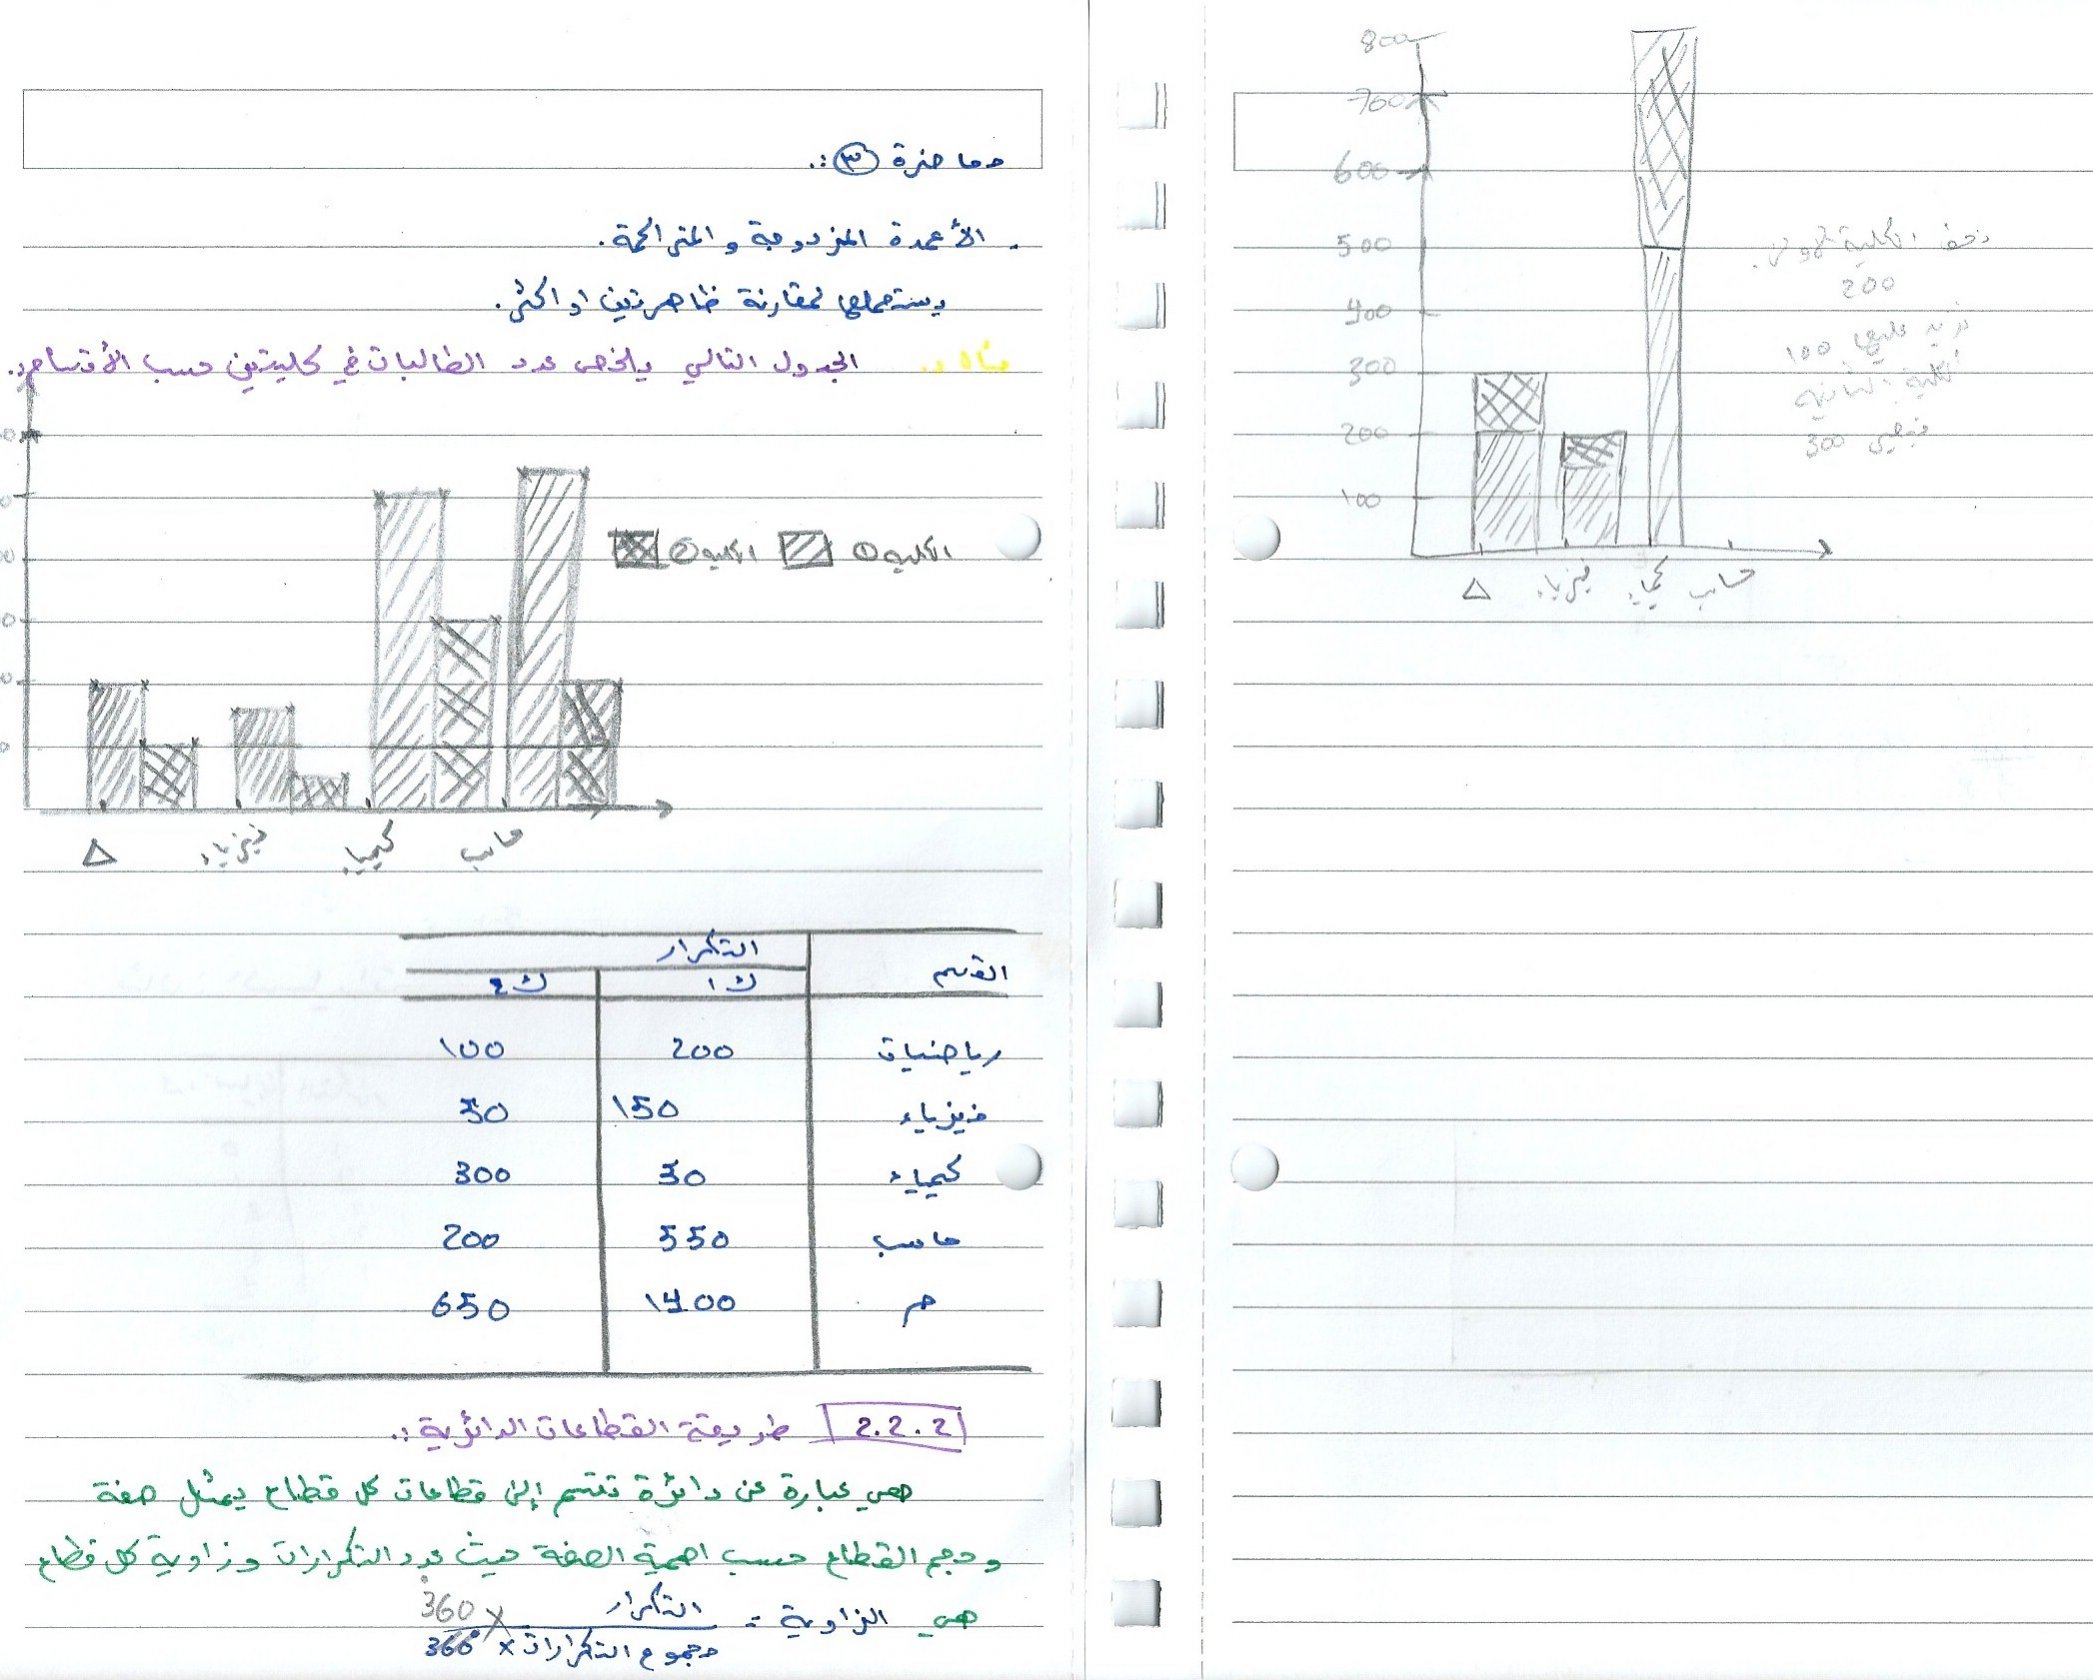 محاضرة ٣ :.
- الأعمدة المزدوجة والمتراكمة.
يستعملها لمقارنة ظاهرتين او اكثر.
مثال :. الجدول التالي يلخص عدد الطالبات في كليتين حسب الأقسام :.
الكلية ① الكلية ②
△ فيزياء كيمياء حاسب
القسم التكرار
ك١ ك2
رياضيات 200 100
فيزياء 150 50
كيمياء 50 300
حاسب 550 200
مـ 1400 650
2.2.2 طريقة القطاعات الدائرية :.
هي عبارة عن دائرة تقسم إلى قطاعات كل قطاع يمثل صفة
وحجم القطاع حسب اهمية الصفة حيث عدد التكرارات وزاوية كل قطاع
هي الزاوية = التكرار × 360
مجموع التكرارات × 360°
800
700
600
500
400
300
200
100
△ فيزياء كيمياء حاسب
الكلية الأولى
200
نزيد عليها 100
الكلية الثانية
300